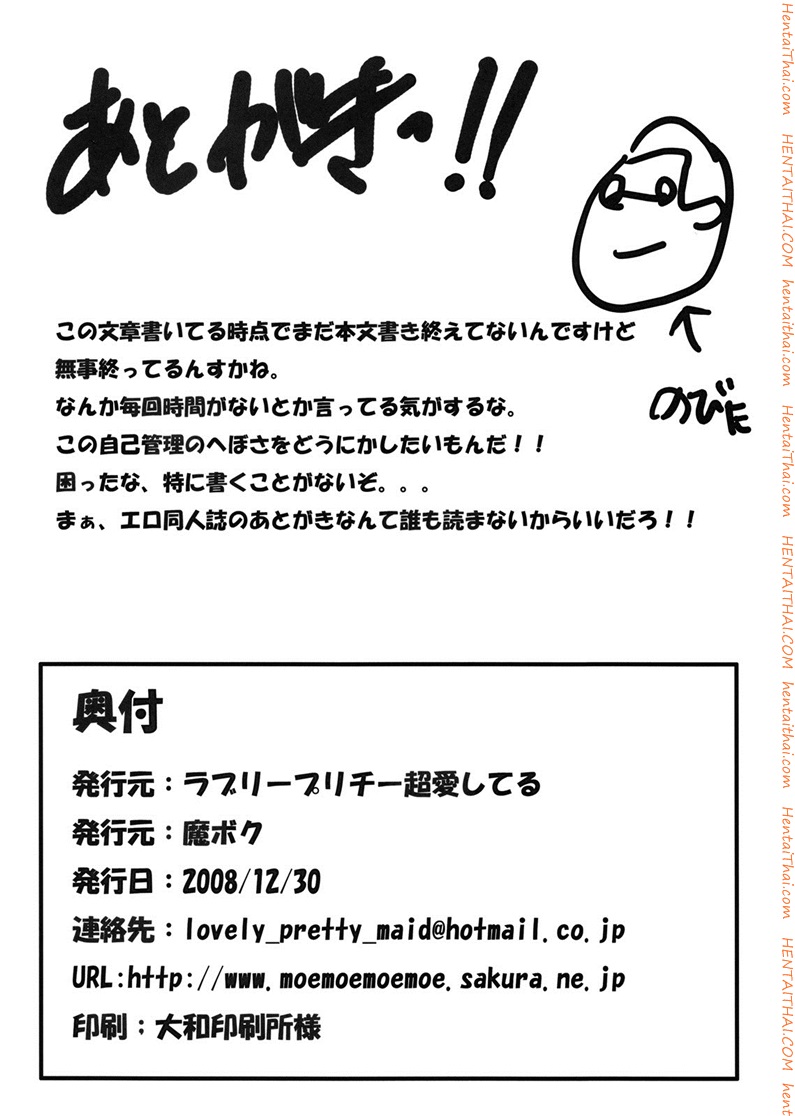 あとがきっ!!
のびた
この文章書いてる時点でまだ本文書き終えてないんですけど
無事終ってるんすかね。
なんか毎回時間がないとか言ってる気がするな。
この自己管理のへぼさをどうにかしたいもんだ!!
困ったな、特に書くことがないぞ。。。
まぁ、エロ同人誌のあとがきなんて誰も読まないからいいだろ!!
奥付
発行元:ラブリープリチー超愛してる
発行元:魔ボク
発行日:2008/12/30
連絡先:lovely_pretty_maid@hotmail.co.jp
URL:http://www.moemoemoemoe.sakura.ne.jp
印刷:大和印刷所様
HentaiThai.com HENTAITHAI.COM hentaithai.com HentaiThai.com HENTAITHAI.COM hentaithai.com HentaiThai.com HENTAITHAI.COM hent